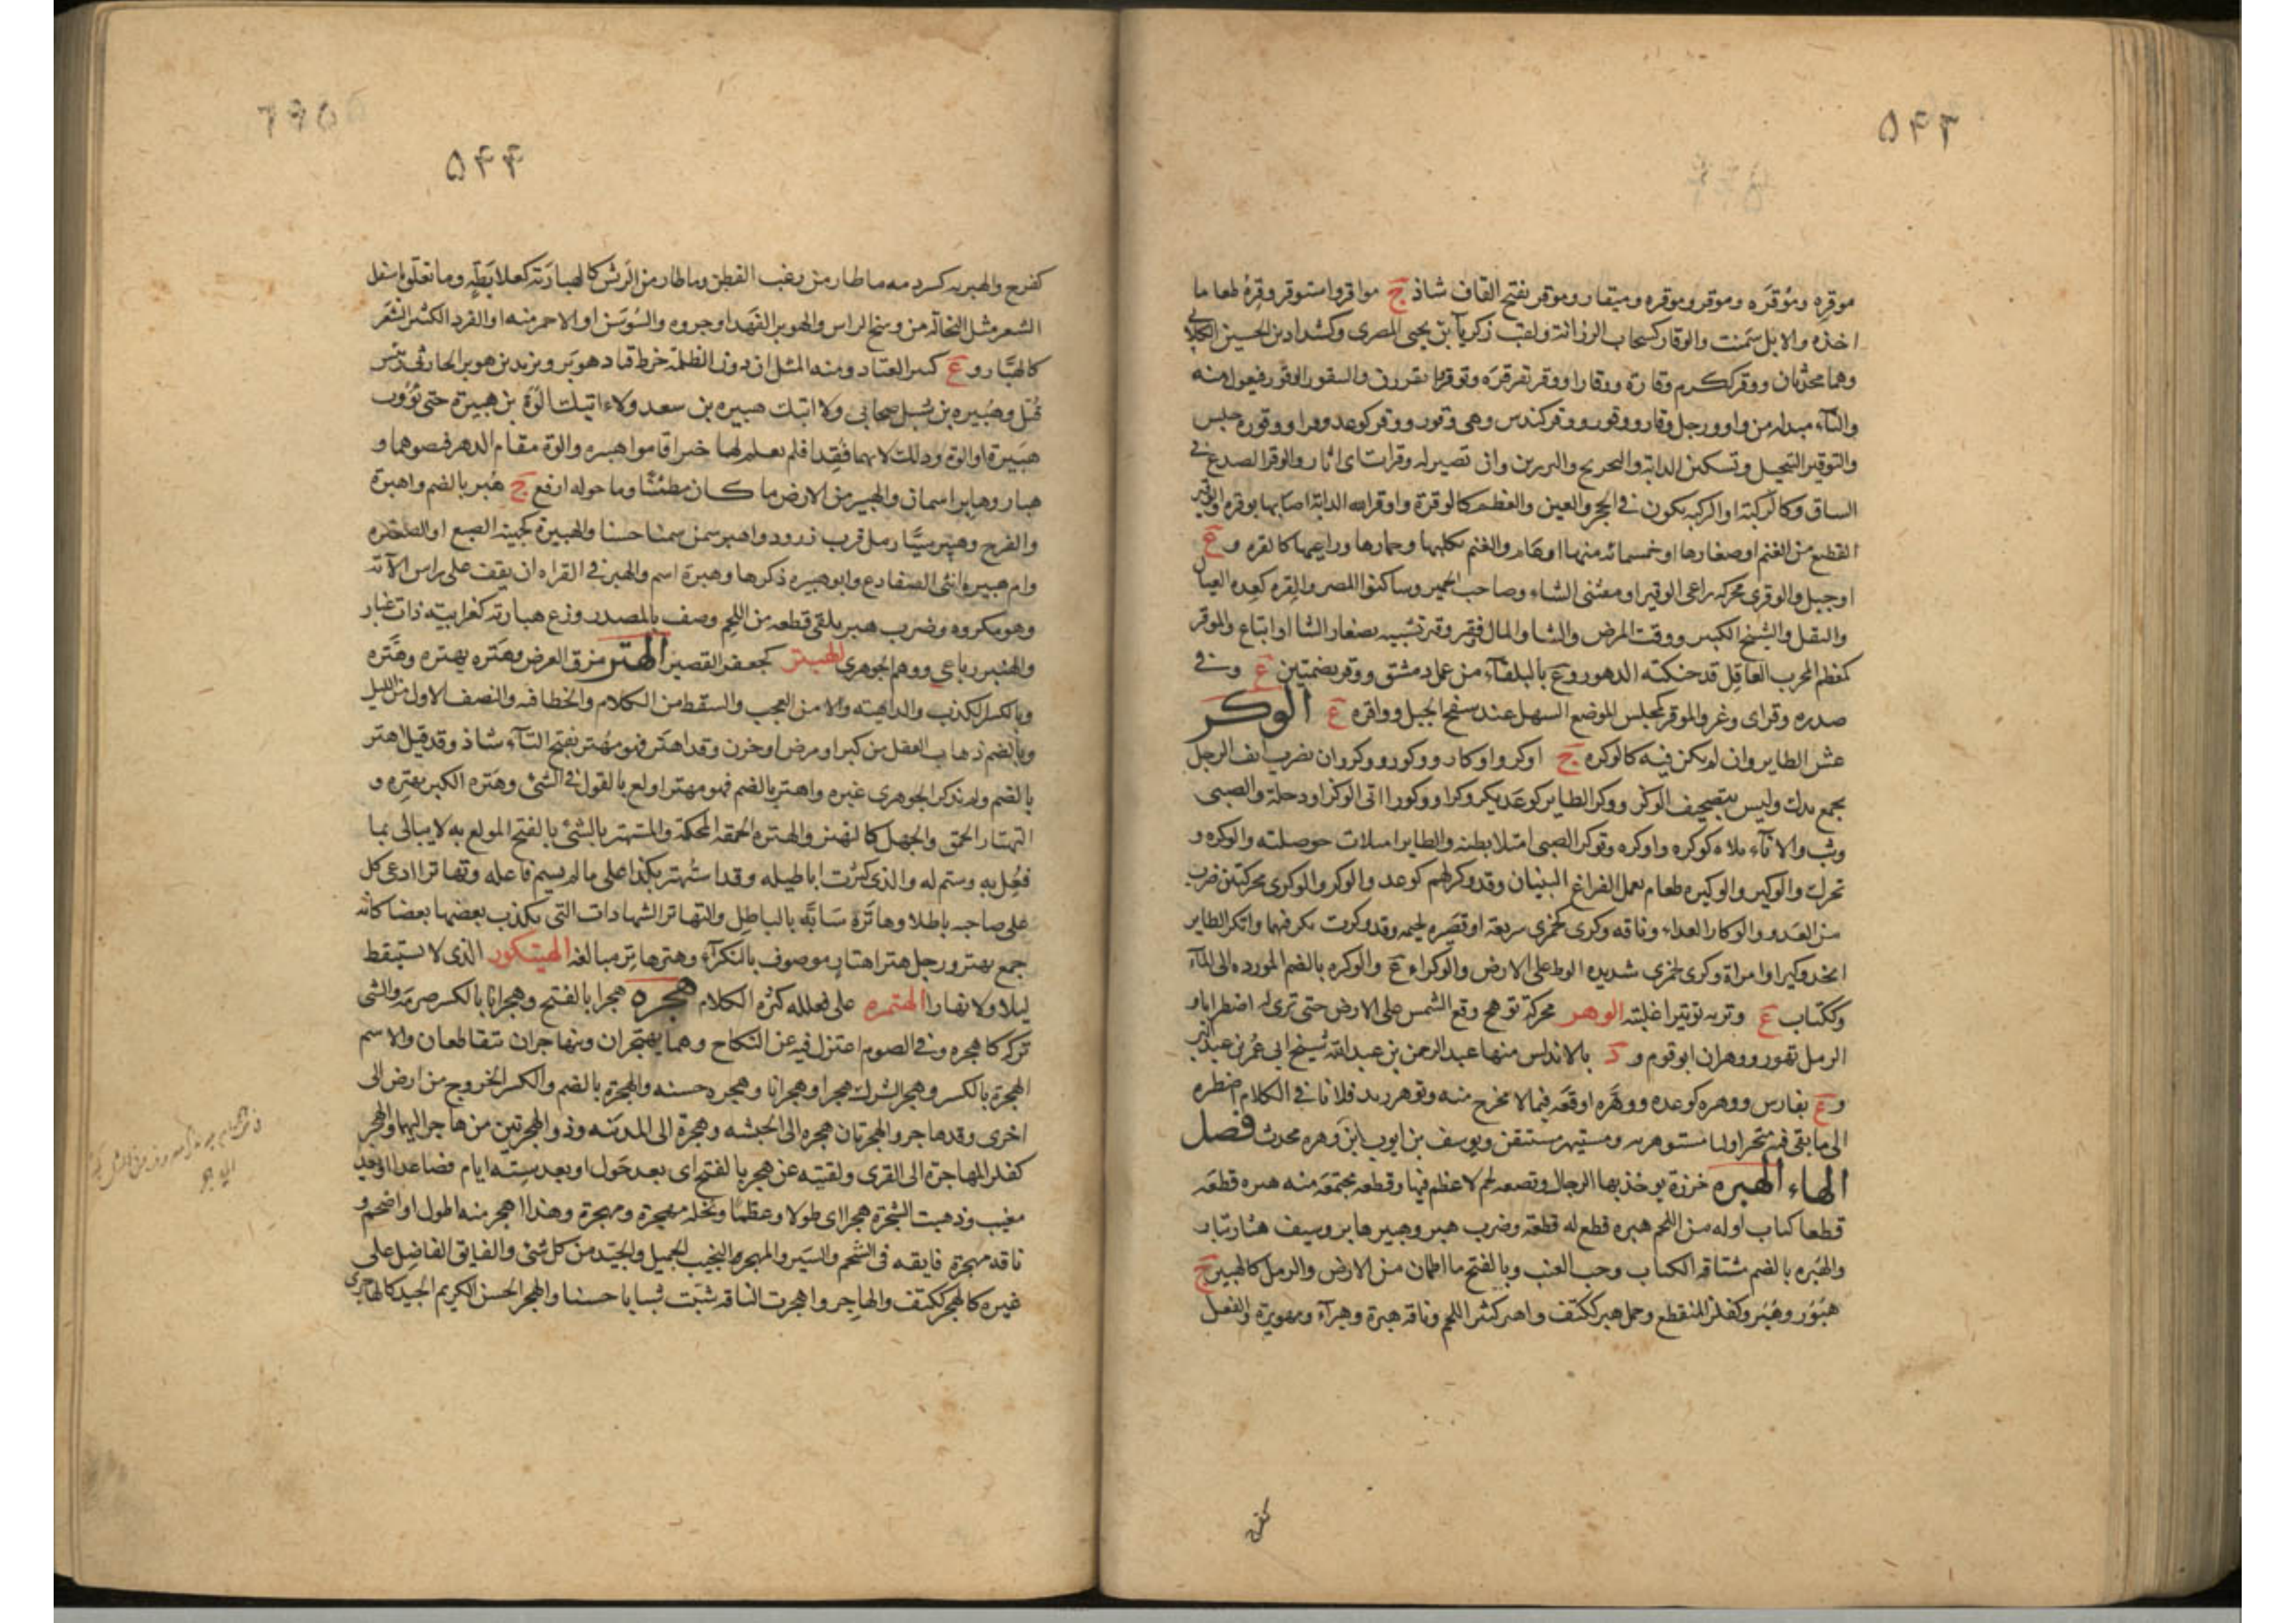 ۵۴۳
موقره وموقرَه وموقر وموقره وميقار وموقر بفتح القاف شاذ ج مواقر واستوقر وقره طعاما
اخذه والابل سمنت والوقار كسحاب الرزانة ولقب زكريا بن يحيى المصرى وكشداد بن الحسين الكلابى
وهما محدثان ووقر ككرم وقارة ووقارا ووقر
والتاء مبدله من واو ورجل وقار ووقور ووقر كندس وهى وقور ووقر كوعد وقرا ووقوره جلس
والتوقير التبجيل وتسكين الدابه والتجريح والتزيين وان تصير له وقرات اى اثار والوقر الصدع فى
الساق وكالوكتة او الكبه يكون فى الحجر والعين والعظم كالوقرة واوقر الله الدابة اصابها بوقره والوقير
القطيع من الغنم او صغارها او خمسمائه منها او عام والغنم بكلبها وحمارها وراعيها كالقره و ع
او جبل والوقرى محركه راعى الوقير او مقتنى الشاء وصاحب الحمير وساكنوا المصر والقره كعده العيال
والثقل والشيخ الكبير ووقت المرض والشا والمال وفقير وقير تشبيه بصغار الشا او اتباع والموقر
كمعظم المجرب العاقل قد حنكته الدهور و ع بالبلقاء من عمل دمشق ووقر بضمتين ع وفى
صدره وقر اى وغر والموقر كمجلس الموضع السهل عند سفح الجبل وواقره ع الوكر
عش الطاير وان لم يكن فيه كالوكره ج اوكر واوكار ووكور ووكر وان نضرب انف الرجل
بجمع يدك وليس بتصحيف الوكز ووكر الطاير كوعد يكر وكرا ووكورا اتى الوكر او دخله والصبى
وثب والاناء ملاه كوكره واوكره وتوكر الصبى امتلا بطنه والطاير امتلات حوصلته والوكره و
تحرك والوكير والوكيره طعام يعمل لفراغ البنيان وقد وكر لهم كوعد والوكر والوكرى محركتين ضرب
من العدو والوكار العداء وناقه وكرى كجمزى سريعة او قصيره لحيمه وقد وكرت تكر فيهما واتكر الطاير
اتخذ وكيرا وامراة وكرى كجمزى شديده الوطء على الارض والوكراء ع والوكره بالضم الموردة الى الماء
وككتاب ع وتربه توتيرا غلبته الوهر محركة توهج وقع الشمس على الارض حتى ترى له اضطرابا و
الرمل تهور ووهران ابو قوم و د بالاندلس منها عبد الرحمن بن عبد الله شيخ ابى عمر بن عبد البر
و ع بفارس ووهره كوعده ووهره اوقعه فيما لا مخرج منه وتوهر زيد فلانا فى الكلام اضطره
الى ما بقى فيه متحيرا وانا مستوهر به ومستيهر مستيقن ويوسف بن ايوب ابن وهره محدث فصل
الهاء الهبره خرزة يوخذ بها الرجال وبضعه لحم لا عظم فيها وقطعه مجتمعه منه هبره قطعه
قطعا كبارا وله من اللحم هبره قطع له قطعة وضرب هبر وهبير هابر وسيف هبار بتار
والهبره بالضم مشاقه الكتان وحب العنب وبالفتح ما اطمان من الارض والرمل كالهبير ج
هبور وهبر وكفلز المنقطع وجمل هبر ككتف واهبر كثير اللحم وناقه هبرة وهبراء ومهوبرة والفعل
كفرح
۵۴۴
كفرح والهبريه كشرذمه ما طار من زغب القطن وما طار من الريش كالهبارية كعلابطة وما تعلق باسفل
الشعر مثل النخالة من وسخ الراس والهوبر الفهد او جروه والسوسن او الاحمر منه او القرد الكثير الشعر
كالهبار و ع كثير القتاد ومنه المثل ان دون الظلمه خرط قتاد هوبر ويزيد بن هوبر الحارثى رئيس
قتل وهبيره بن شبل صحابى ولا اتيك هبيره بن سعد ولا اتيك الوة بن هبيرة حتى يؤوب
هبيرة او الوة وذلك لانهما فقدا فلم يعلم لهما خبر اقاموا هبيره والوة مقام الدهر فنصبوهما و
هبار وهابر اسمان والهبير من الارض ما كان مطمئنا وما حوله ارفع ج هبر بالضم واهبرة
والفرج وهبير سيار رمل قرب زرود واهبر سمن سمنا حسنا والهبيرة كجهينه الضبع او الصغيره
وام هبيره انثى الضفادع وابو هبيره ذكرها وهبرة اسم والهبر فى القراه ان يقف على راس الآية
وهو مكروه وضرب هبر يلقى قطعه من اللحم وصف بالمصدر وزع هبارية كغرابية ذات غبار
والهنبر رباعى ووهم الجوهرى الهبتر كجعفر القصير الهتر مزق العرض وهتره يهتره وهتره
وبالكسر الكذب والداهيه والامر العجب والسقط من الكلام والخطا فيه والنصف الاول من الليل
وبالضم ذهاب العقل من كبر او مرض او حزن وقد اهتر فهو مهتر بفتح التاء شاذ وقد قيل اهتر
بالضم ولم يذكر الجوهرى غيره واهتر بالضم فهو مهتر اولع بالقول فى الشئ وهتره الكبر يهتره و
التهتار الحمق والجهل كالتهتر والهتره الحمقه المحكمة والمستهتر بالشئ بالفتح المولع به لا يبالى بما
فعل به وشتم له والذى كثرت اباطيله وقد استهتر بكذا على ما لم يسم فاعله وتهاترا ادعى كل
على صاحبه باطلا وهاتره سابه بالباطل والتهاتر الشهادات التى يكذب بعضها بعضا كانه
جمع تهتر ورجل هتر اهتار موصوف بالنكراء وهتر هاتر مبالغه الهيتكور الذى لا يستيقظ
ليلا ولا نهارا الهتمره على فعلله كثره الكلام هجره هجرا بالفتح وهجرانا بالكسر صرمه والشى
تركه كاهجره وفى الصوم اعتزل فيه عن النكاح وهما يهتجران ويتهاجران يتقاطعان والاسم
الهجرة بالكسر وهجر الشرك هجرا وهجرانا وهجره حسنه والهجرة بالضم والكسر الخروج من ارض الى
اخرى وقد هاجر والهجرتان هجره الى الحبشه وهجرة الى المدينه وذو الهجرتين من هاجر اليهما والهجر
كفلز المهاجرة الى القرى ولقيته عن هجر بالفتح اى بعد حول او بعد ستة ايام فصاعدا او بعد
مغيب وذهبت الشجرة هجرا اى طولا وعظما ونخله مهجرة ومهجرة وهذا اهجر منه اطول او اضخم و
ناقه مهجرة فايقه فى الشحم والسير والمهجر النجيب الجميل والجيد من كل شئ والفايق الفاضل على
غيره كالهجر ككتف والهاجر واهجرت الناقه شبت شبابا حسنا والهجر الحسن الكريم الجيد كالهاجرى